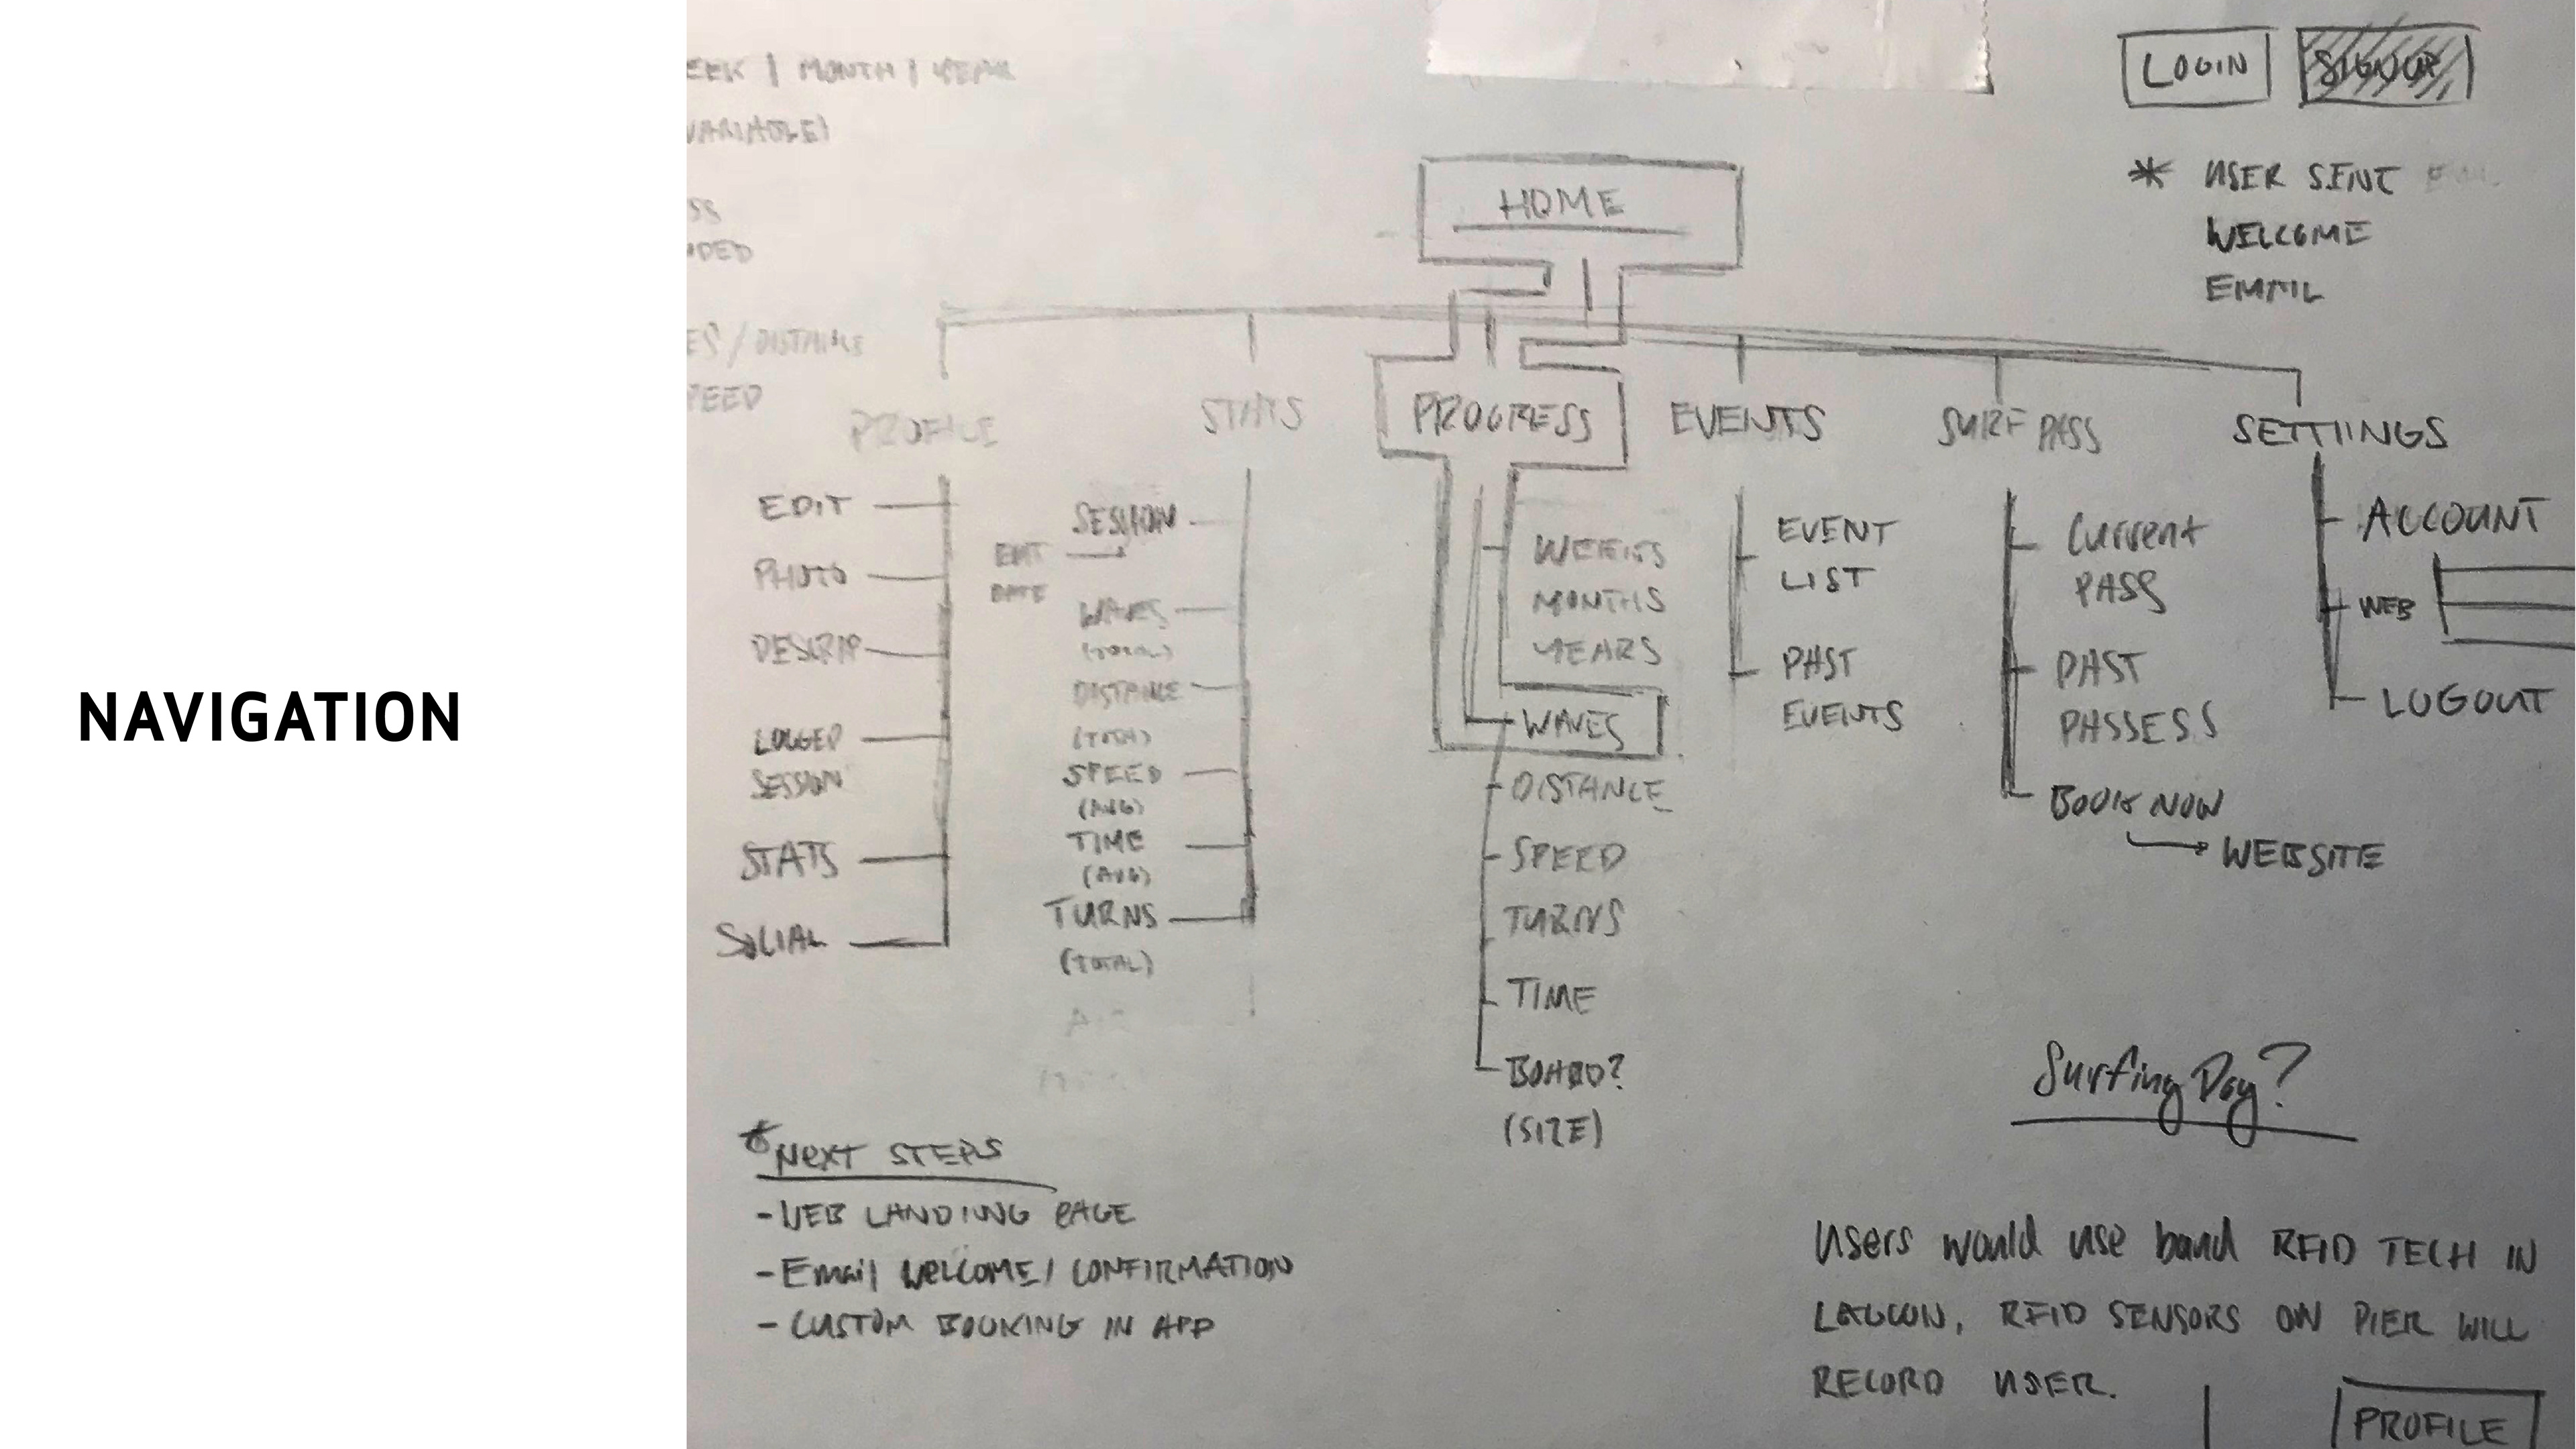 NAVIGATION
EEK | MONTH | YEAR
VARIABLE)
SS
DED
ES / DISTANCE
PEED
LOGIN
SIGNUP
* USER SENT
WELCOME
EMAIL
HOME
PROFILE
EDIT
PHOTO
DESCRIP
LOGGED
SESSION
STATS
SOCIAL
STATS
SESSION
EDIT
DATE
WAVES
(TOTAL)
DISTANCE
(TOTAL)
SPEED
(AVG)
TIME
(AVG)
TURNS
(TOTAL)
PROGRESS
WEEKS
MONTHS
YEARS
WAVES
DISTANCE
SPEED
TURNS
TIME
BOARD?
(SIZE)
EVENTS
EVENT
LIST
PAST
EVENTS
SURF PASS
Current
PASS
PAST
PASSESS
BOOK NOW
WEBSITE
SETTIINGS
ACCOUNT
WEB
LOGOUT
* NEXT STEPS
- WEB LANDING PAGE
- Email WELCOME / CONFIRMATION
- CUSTOM BOOKING IN APP
Surfing Day?
Users would use band RFID TECH IN
LAGOON, RFID SENSORS ON PIER WILL
RECORD USER.
PROFILE